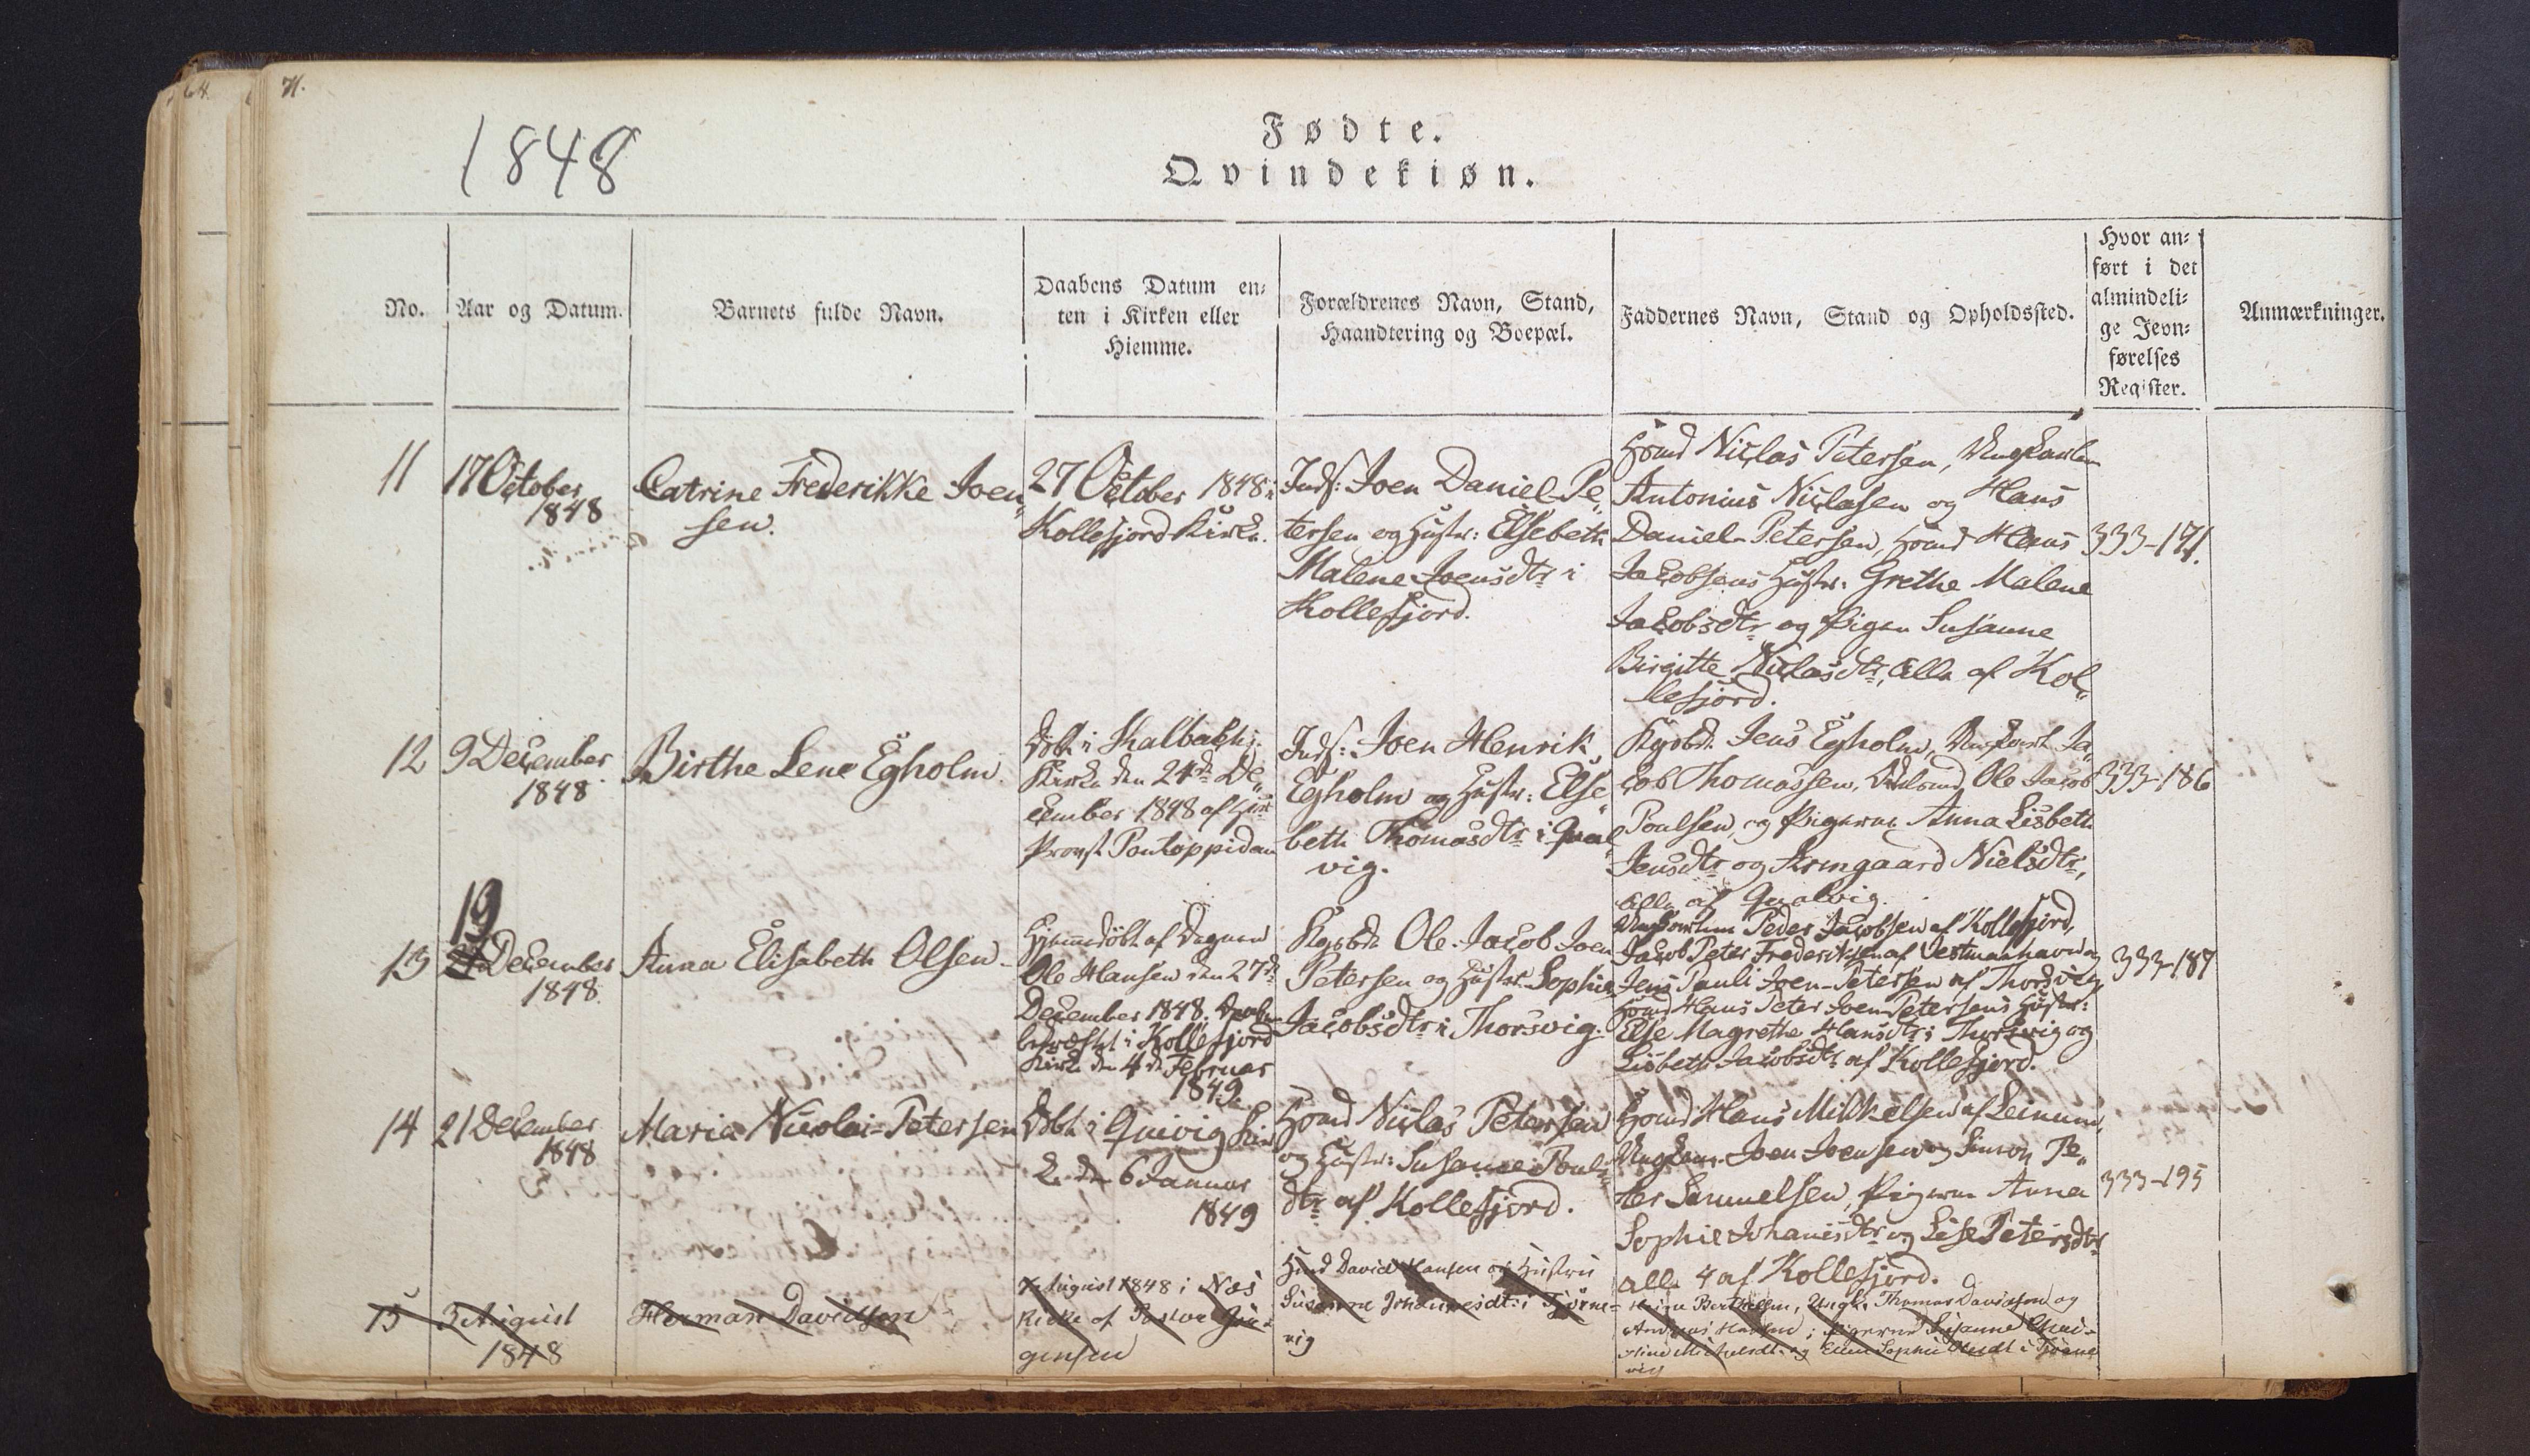 64.
71.
1848
Fødte.
Qvindekiøn.
No.
Aar og Datum.
Barnets fulde Navn.
Daabens Datum en-
ten i Kirken eller
Hiemme.
Forældrenes Navn, Stand,
Haandtering og Boepæl.
Faddernes Navn, Stand og Opholdssted.
Hvor an-
ført i det
almindeli-
ge Jevn-
førelses
Register.
Anmærkninger.
11
17 October
1848
Catrine Frederikke Joen„
sen.
27 October 1848 i
Kollefjord Kirke.
Inds: Joen Daniel Pe„
tersen og Hustr: Elsebeth
Malene Joensdtr i
Kollefjord.
Hmd Niclas Petersen, Ungkarlene
Antonius Niclasen og Hans
Daniel Petersen, Hmd Hans
Jacobsens Hustr: Grethe Malene
Jacobsdtr og Pigen Susanne
Birgitte Niclasdtr, alle af Kol„
lefjord.
333-171.
12
9 December
1848
Birthe Lene Egholm.
Døbt i
Kirke den 24de De„
cember 1848 af Hr
Provst Pontoppidan
Inds: Joen Henrik
Egholm og Hustr: Else„
beth Thomasdtr i Qval„
vig.
Kgsbd. Jens Egholm, Ungkarl Ja„
cob Thomassen, Ole Jacob
Poulsen, og Pigerne Anna Lisbeth
Jensdtr og Armgaard Nielsdtr,
alle af Qvalvig.
333-186
13
19
December
1848.
Anna Elisabeth Olsen
Hjemmedøbt af Degnen
Ole Hansen den 27de
December 1848. Daaben
bekræftet i Kollefjord
Kirke den 4de Februar
1849
Kgsbd. Ole Jacob Joen
Petersen og Hustr. Sophie
Jacobsdtr i Thorsvig.
Ungkarlene Peder Jacobsen af Kollefjord,
Jacob Peter Frederiksen af Vestmanhavn og
Jens Pauli Joen-Petersen af Thorsvig,
Hmd Hans Peter Joen Petersens Hustr:
Else Magrethe Hansdtr i Thorsvig og
Lisbeth Jacobsdtr af Kollefjord.
333-187
14
21 December
1848
Maria Nicolai-Petersen
Døbt i Qvivig Kir„
ke den 6 Januar
1849
Hmd Niclas Petersen
og Hustr: Susanne Pouls
dtr af Kollefjord.
Hmd Hans Mikkelsen af Leinum,
Ungkarl. Joen Joensen og Simon Pe„
ter Samuelsen, Pigerne Anna
Sophie Johanisdtr og Lise Petersdtr
alle 4 af Kollefjord.
333-195
15
3 August
1848
Herman Davidsen
7 August 1848 i Næs
Kirke af Pastor Jür-
gensen
Hmd David Hansen og Hustru
Susanne Johannesdt: i Tjørne-
vig
Berthelsen, Ungk. Thomas Davidsen og
Andreas Hansen; Pigerne Susanne
Michelsdt. og Ellen Sophie Olesdt i Tjørne
vig